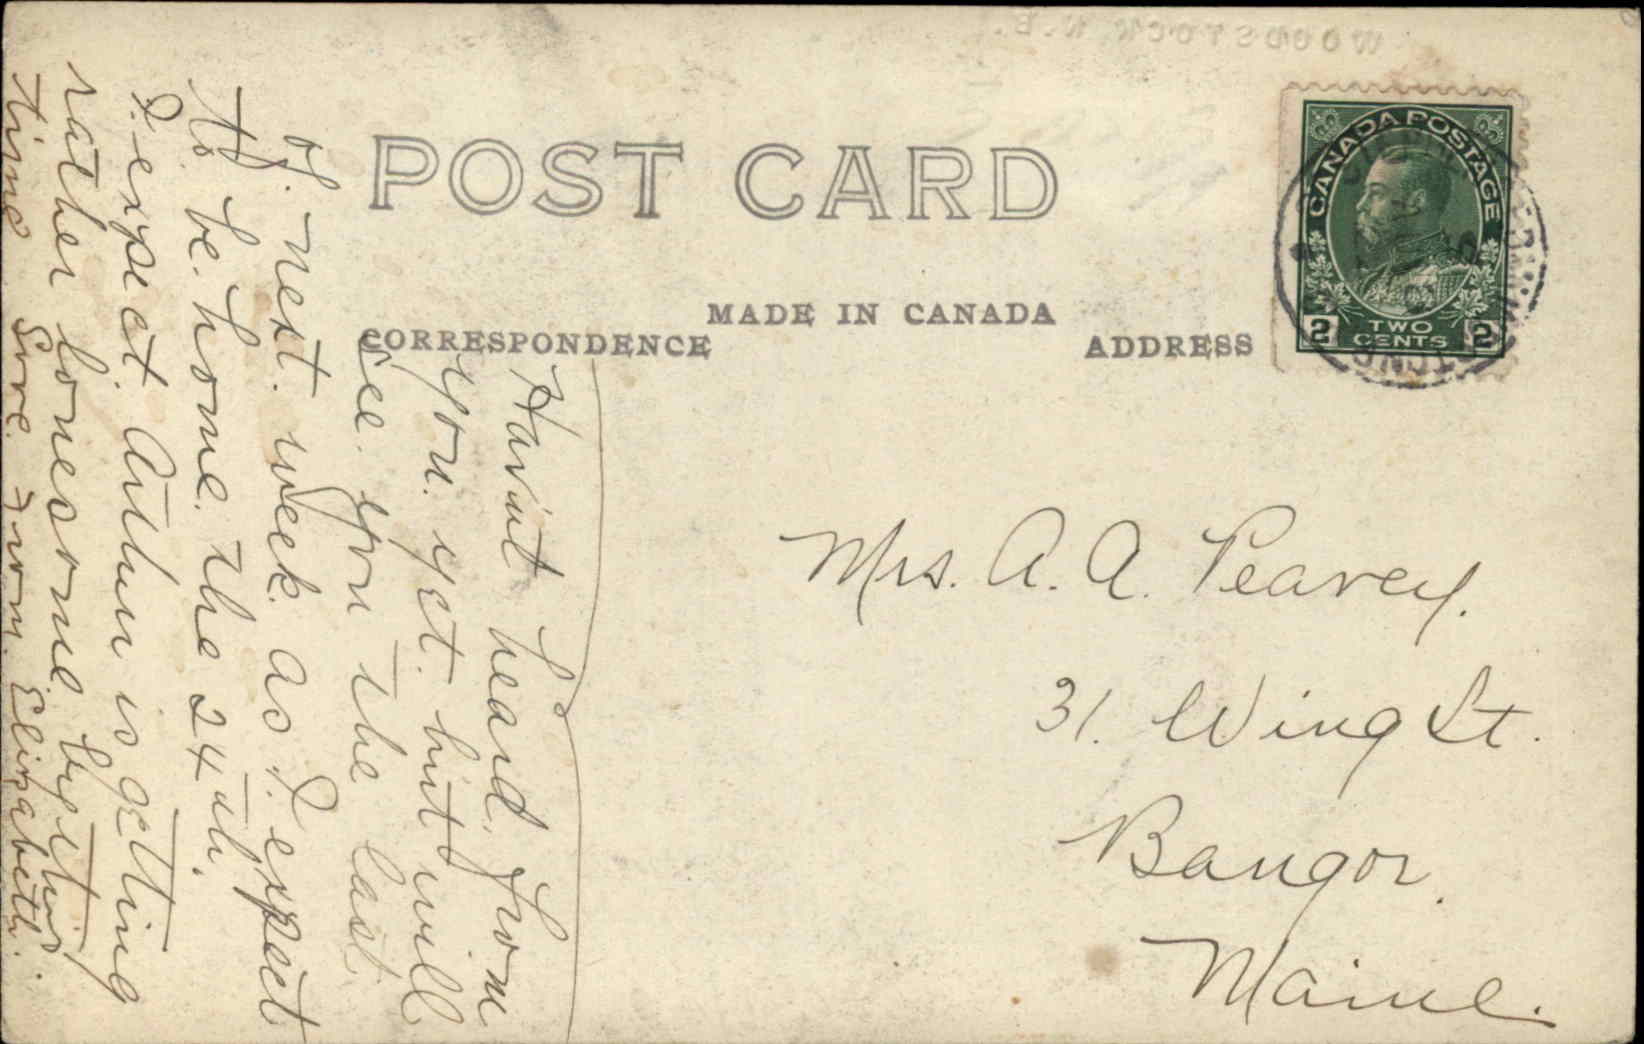 WOODSTOCK N.B.
POST CARD
MADE IN CANADA
CORRESPONDENCE
ADDRESS
CANADA POSTAGE
2 TWO CENTS 2
Mrs. A. A. Peavey.
31. Wing St.
Bangor.
Maine.
Havint heard from
you. yet. but will
see. you the last
of. next. week. as I. expect
to. be. home. the 24th.
I. expect. Arthur is getting
rather lonesome. by this
time Love. From. Elizabeth.